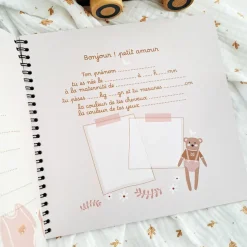 Bonjour ! petit amour
Ton prénom ...............
tu es née le .......... à .... h .... mn
à la maternité de ...............
tu pèses ..... kg ... gr et tu mesures ..... cm
la couleur de tes cheveux ..........
la couleur de tes yeux ..........